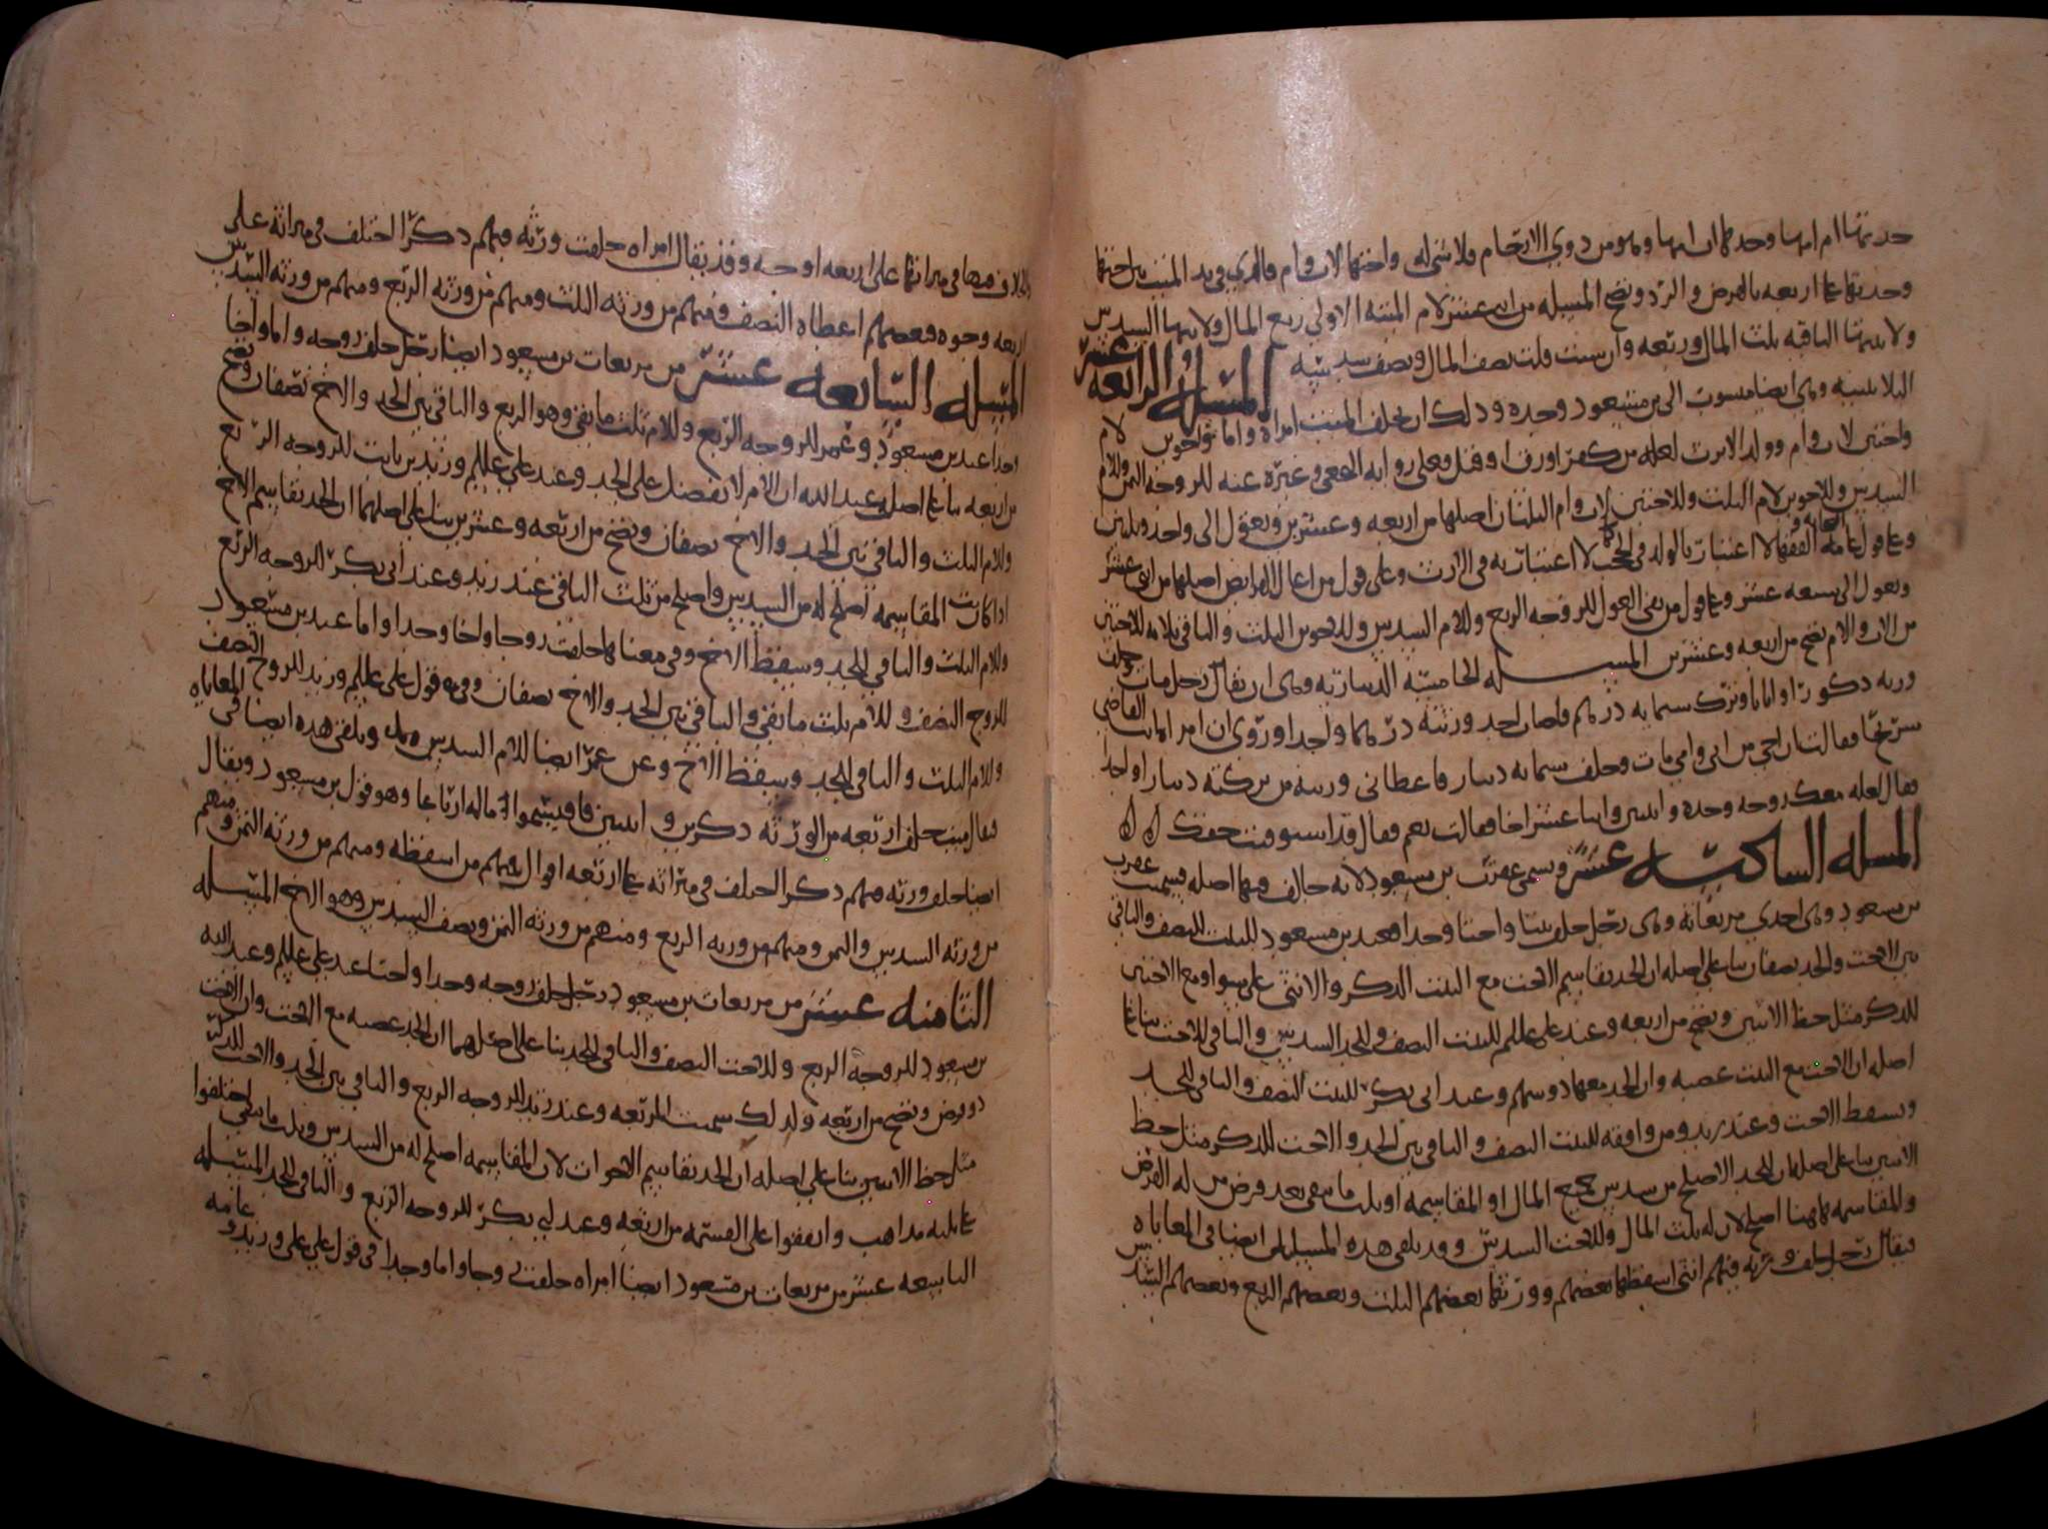 حدتها ام امها وحدها اب امها وهو من ذوي الارحام فلا شي له واختها لاب وام فالذي في يد الميت بين اختها
وحدتها على اربعه بالفرض والرد وتصح المسله من اثني عشر لام الميته الاولى ربع المال ولابنتها السدس
ولابنتها الباقيه ثلث المال وربعه وان شيت قلت نصف المال ونصف سدسه المسله الرابعه عشر
الثلاثينيه وهي ايضا منسوب الى بن مسعود وحده وذلك ان يخلف الميت امراه واما واخوين لام
واختين لاب وام وولد الا يرث لعله من كفر او رق او قتل فعلى روايه النخعي وغيره عنه للزوجه الثمن وللام
السدس وللاخوين لام الثلث وللاختين لاب وام الثلثان اصلها من اربعه وعشرين وتعول الى واحد وثلثين
وعلى قول عامه الصحابه والفقها لا اعتبار بالولد في الحجب كما لا اعتبار به في الارث وعلى قول من اعال الفرايض اصلها من اثني عشر
وتعول الى سبعه عشر وعلى قول من نفى العول للزوجه الربع وللام السدس وللاخوين الثلث والباقي ثلاثه للاختين
من الاب والام تصح من اربعه وعشرين المسله الخامسه الديناريه وهي ان يقال رجل مات وخلف
ورثه ذكورا واناثا وترك ستمايه درهم فاصاب احد ورثته درهما واحدا وروي ان امراه اتت القاضي
شريحا فقالت ان اخي من ابي وامي مات وخلف ستمايه دينار فاعطاني ورثته من تركته دينارا واحدا
فقال لعله معك زوجه وجده وابنتين واثنا عشر اخا فقالت نعم فقال قد استوفيت حقك
المسله السادسه عشر وتسمى عقرب بن مسعود لانه خالف فيها اصله فسميت عقرب
بن مسعود وهي احدى مربعاته وهي رجل خلف بنتا واختا وجدا فعند بن مسعود للبنت النصف والباقي
بين الاخت والجد نصفان بنا على اصله ان الجد يقاسم الاخت مع البنت الذكر والانثى على سوا ومع الاختين
للذكر مثل حظ الانثيين وتصح من اربعه وعند علي عليلم للبنت النصف وللجد السدس والباقي للاخت بنا على
اصله ان الاخت مع البنت عصبه وان الجد معهما ذو سهم وعند ابي بكر للبنت النصف والباقي للجد
وتسقط الاخت وعند زيد ومن وافقه للبنت النصف والباقي بين الجد والاخت للذكر مثل حظ
الانثيين بنا على اصله ان للجد الاصلح من سدس جميع المال او المقاسمه او ثلث ما بقي بعد فرض من له الفرض
والمقاسمه هاهنا اصلح لان له ثلث المال وللاخت السدس وقد يلقى هذه المسله ايضا في المعاياه
فيقال رجل خلف ورثه فيهم انثى اسقطها بعضهم وورثها بعضهم الثلث وبعضهم الربع وبعضهم السدس
فالخلاف فيها في ميراثها على اربعه اوجه وقد يقال امراه خلفت ورثه فيهم ذكر اختلف في ميراثه على
اربعه وجوه فبعضهم اعطاه النصف ومنهم من ورثه الثلث ومنهم من ورثه الربع ومنهم من ورثه السدس
المسله السابعه عشر من مربعات بن مسعود ايضا رجل خلف زوجه واما واخا
وجدا عند بن مسعود وعمر للزوجه الربع وللام ثلث ما بقي وهو الربع والباقي بين الجد والاخ نصفان وتصح
من اربعه بنا على اصل عبد الله ان الام لا تفضل على الجد وعند علي عليلم وزيد بن ثابت للزوجه الربع
وللام الثلث والباقي بين الجد والاخ نصفان وتصح من اربعه وعشرين بنا على اصلهما ان الجد يقاسم الاخ
اذا كانت المقاسمه اصلح له من السدس واصلح من ثلث الباقي عند زيد وعند ابي بكر للزوجه الربع
وللام الثلث والباقي للجد وسقط الاخ وفي معناها خلفت زوجا واخا وجدا واما عند بن مسعود
للزوج النصف وللام ثلث ما بقي والباقي بين الجد والاخ نصفان وفي قول علي عليلم وزيد للزوج النصف
وللام الثلث والباقي للجد وسقط الاخ وعن عمر ايضا للام السدس ويلقى هذه ايضا في المعاياه
فيقال ميت خلف اربعه من الورثه ذكرين وانثيين فاقتسموا ماله ارباعا وهو قول بن مسعود ويقال
ايضا خلف ورثه فيهم ذكر اختلف في ميراثه على اربعه اقوال فمنهم من اسقطه ومنهم من ورثه الثمن ومنهم
من ورثه السدس والثمن ومنهم من ورثه الربع ومنهم من ورثه الثمن ونصف السدس وهو الاخ المسله
الثامنه عشر من مربعات بن مسعود رجل خلف زوجه وجدا واختا عند علي عليلم وعبد الله
بن مسعود للزوجه الربع وللاخت النصف والباقي للجد بنا على اصلهما ان الجد عصبه مع الاخت وان الاخت
ذو فرض وتصح من اربعه ولذلك سميت المربعه وعند زيد للزوجه الربع والباقي بين الجد والاخت للذكر
مثل حظ الانثيين بنا على اصله ان الجد يقاسم الاخوات لان المقاسمه اصلح له من السدس وثلث ما بقي اختلفوا
على ثلثه مذاهب واتفقوا على القسمه من اربعه وعند ابي بكر للزوجه الربع والباقي للجد المسله
التاسعه عشر من مربعات بن مسعود ايضا امراه خلفت زوجا واما وجدا في قول علي وزيد وعامه